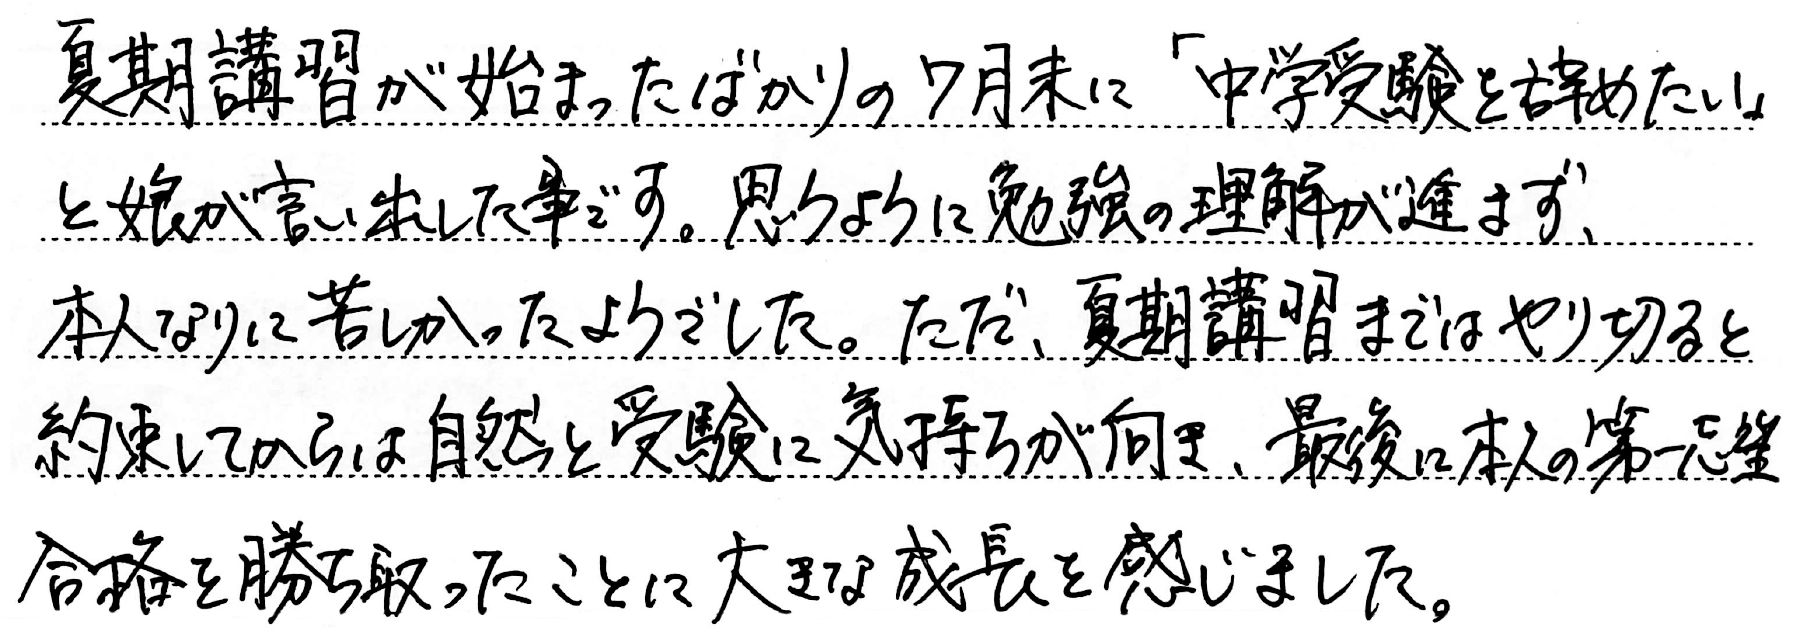 夏期講習が始まったばかりの7月末に「中学受験を辞めたい」
と娘が言い出した事です。思うように勉強の理解が進まず、
本人なりに苦しかったようでした。ただ、夏期講習まではやり切ると
約束してからは自然と受験に気持ちが向き、最後に本人の第一志望
合格を勝ち取ったことに大きな成長を感じました。